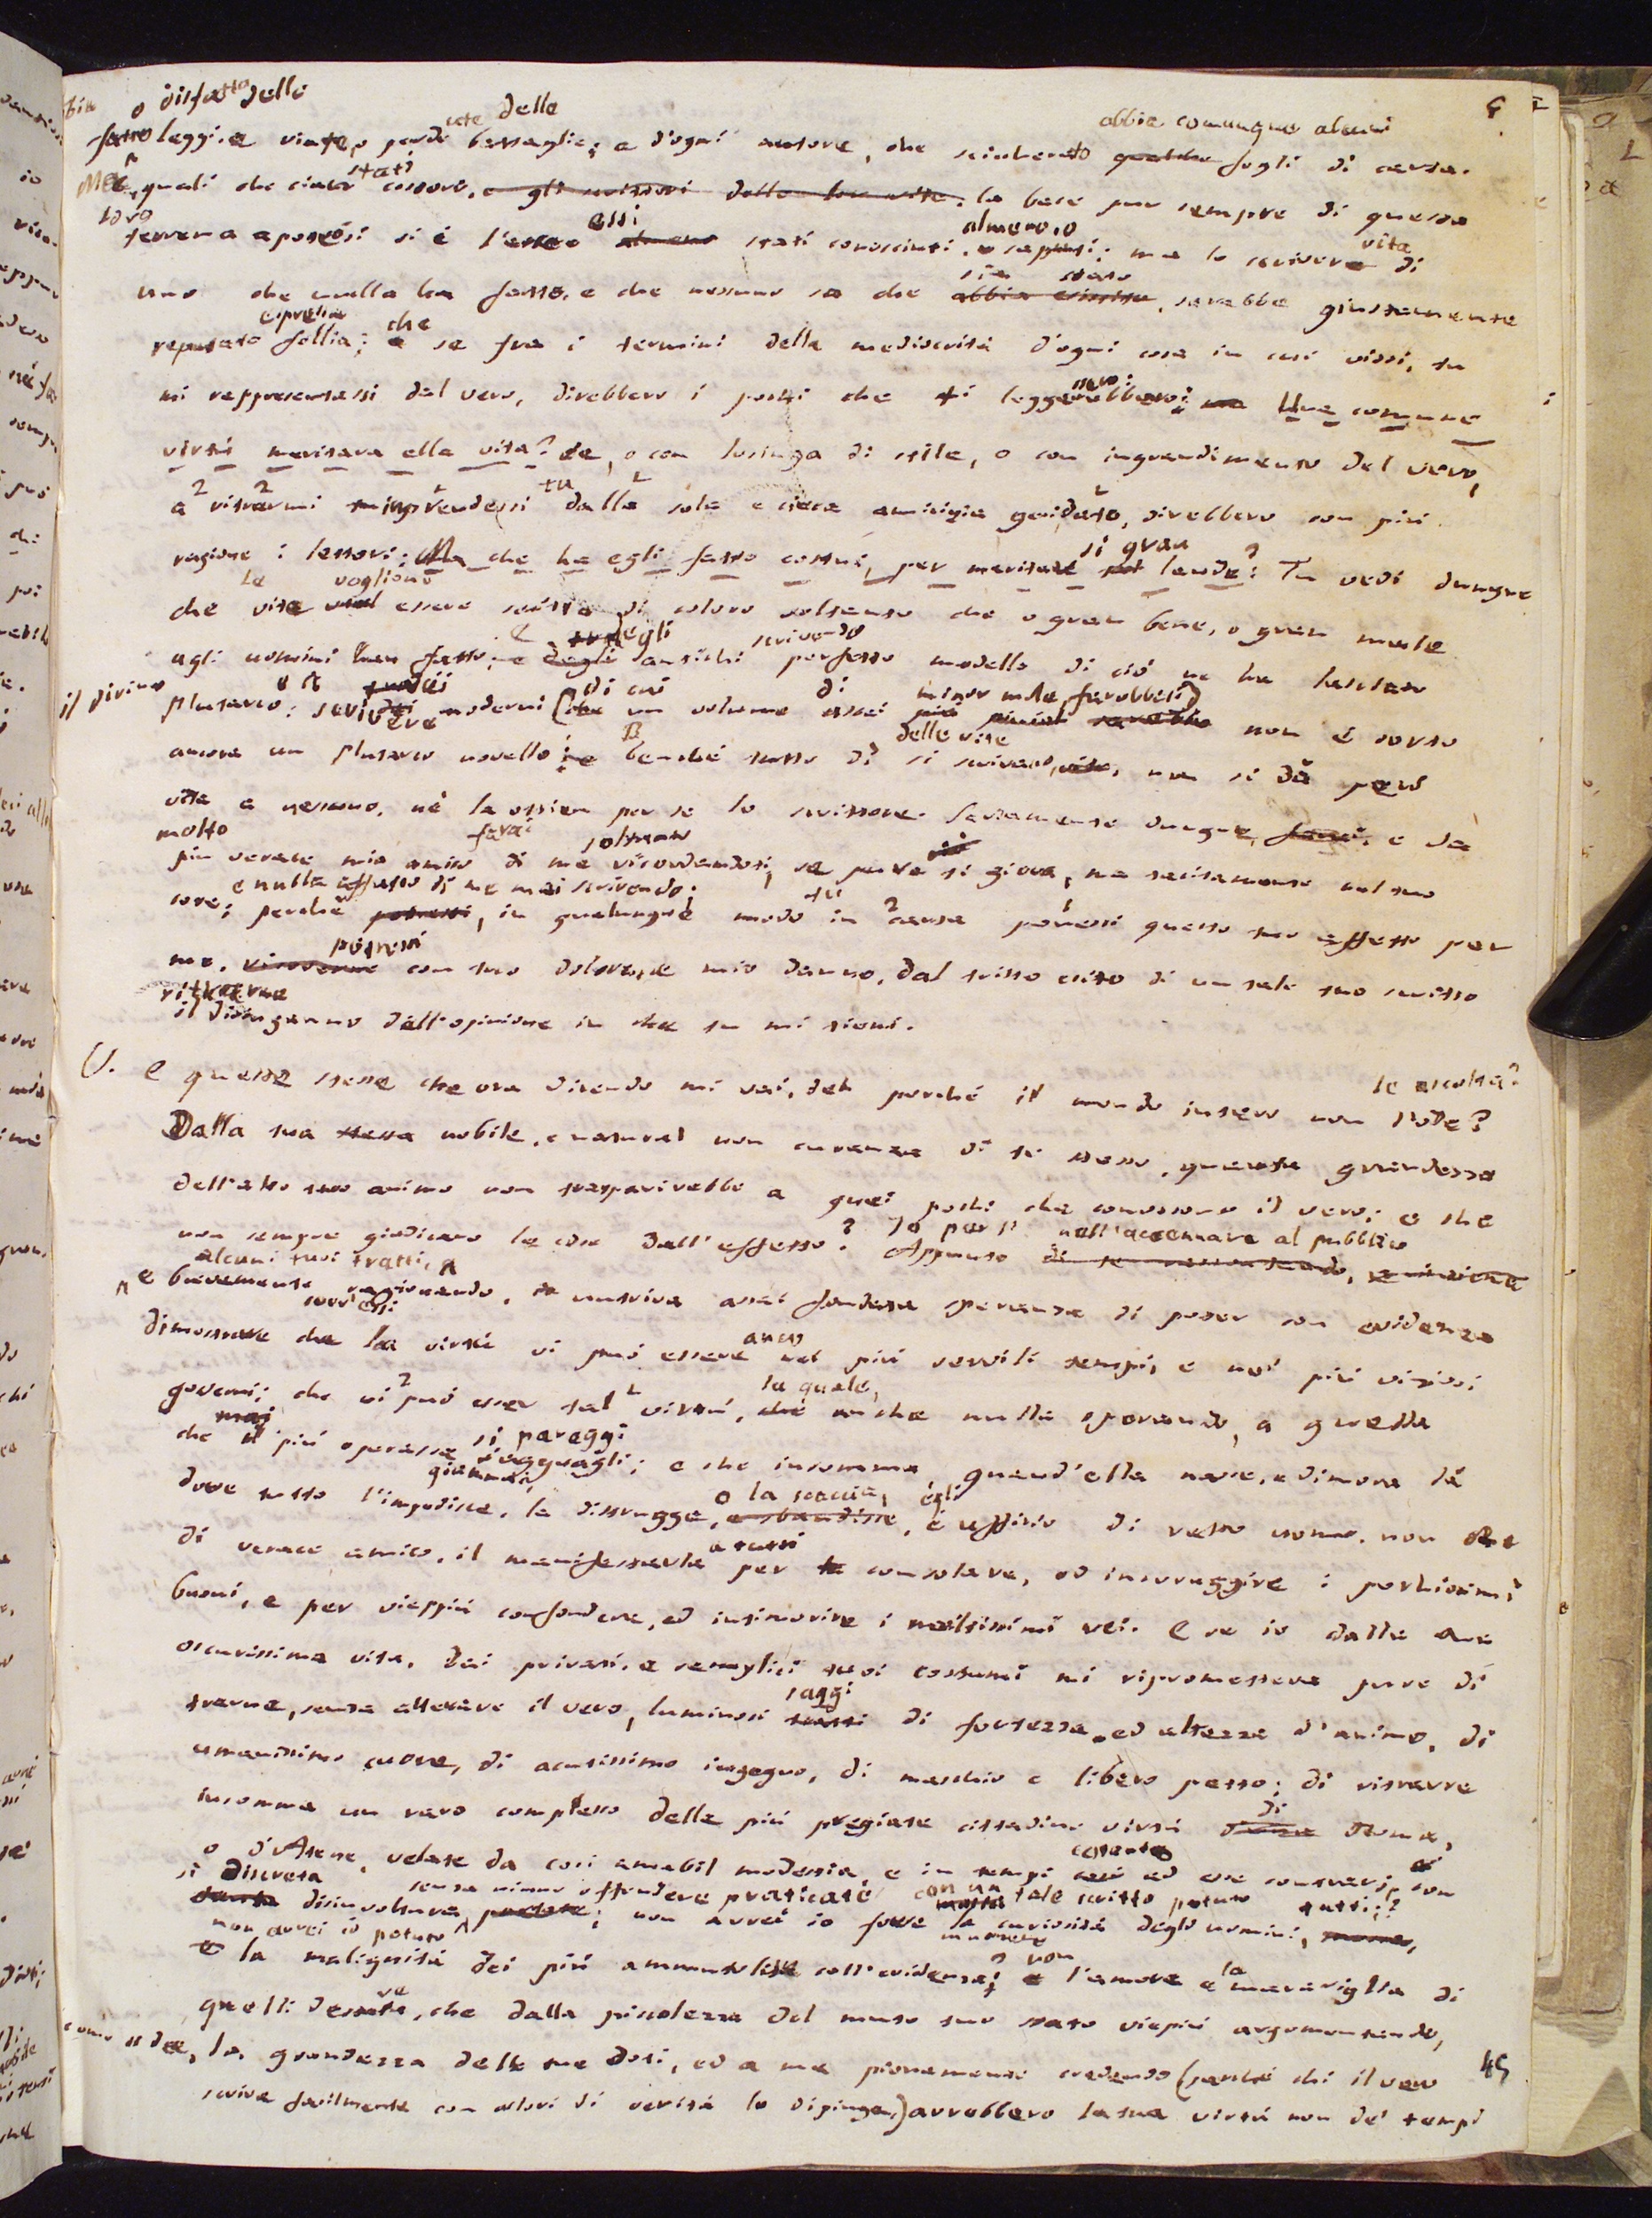 o disfatto delle
fatto leggi, e vinte, o perdute delle battaglie; a d'ogni autore, che scicherato abbia comunque alcuni fogli di carta.
Ma, quali che siano stati costoro, e gli scrittori delle loro vite, la base pur sempre di questa
loro terrena apoteosi si è l'essere essi almeno stati conosciuti, almeno, o saputi: ma lo scrivere vita di
uno che nulla ha fatto, e che nessuno sa che abbia esistito sia stato, sarebbe giustamente
reputato espressa follia; che se fra i termini della mediocrità d'ogni cosa in cui vissi, tu
mi rappresentassi dal vero, direbbero i pochi che ti leggerebbero; ma Una comune
virtù meritava ella vita? Se, o con lusinga di stile, o con ingrandimento del vero,
a ritrarmi imprendessi tu dalla sola e cieca amicizia guidato, direbbero con più
ragione i lettori: Ma che ha egli fatto costui, per meritare si gran laude? Tu vedi dunque
che vite vogliono essere scritte di coloro soltanto che o gran bene, o gran male
agli uomini han fatto; e degli antichi scrivendo perfetto modello di ciò ne ha lasciato
il divino Plutarco: a scrivere dei moderni (di cui un volume assai di minor mole farebbesi) non è sorto
ancora un Plutarco novello; e Benché tutto dì si scrivano delle vite, non si dà però
vita a nessuno, né la ottien per se lo scrittore. Saviamente dunque, farai, e da
molto più verace mio amico farai di me ricordandosi soltanto, se pure ti giova, ma tacitamente nel tuo
core; e nulla affatto di me mai scrivendo: perché potresti, in qualunque modo tu in causa ponessi questo tuo affetto per
me, riceverne potresti con tuo dolore, e mio danno, dal tristo esito di un tale tuo scritto
ritrarne il disinganno dall'opinione in che tu mi tieni.
U. E queste stesse che ora dicendo mi vai, deh perché il mondo intero non l'ode? le ascolta?
Dalla tua stessa nobile, e natural non curanza di te stesso, quanta grandezza
dell'alto tuo animo non trasparirebbe a quei pochi che conoscono il vero; e che
non sempre giudicano le cose dall'effetto? Appunto Io però nell'accennare al pubblico
alcuni tuoi tratti,
e brevemente ragionando sovr'essi, nutriva assai fondata speranza di poter con evidenza
dimostrare che la virtù vi può essere anco nei più servili tempi, e nei più viziosi
governi; che vi può esser tal virtù, che la quale, anche nulla operando, a quella
che mai il più operasse si pareggi s'agguagli; e che insomma, quand'ella nasce, e dimora là
dove tutto l'impedisce, la distrugge, o la scaccia, e sbandisce, egli è uffizio di retto uomo, non che
di verace amico, il manifestarla a tutti per te consolare, ed incoraggire i pochissimi
buoni, e per vieppiù confondere, ed intimorire i moltissimi rei. E se io dalla tua
oscurissima vita, dai privati, e semplici tuoi costumi mi riprometteva pure di
trarne, senza alterare il vero, luminosi saggi tratti di fortezza, ed altezza d'animo, di
umanissimo cuore, di acutissimo ingegno, di maschio e libero petto; di ritrarre
insomma un raro complesso delle più pregiate cittadine virtù di Roma,
o d'Atene, velate da così amabil modestia, e in tempi cotanto ad esse contrarj, con
si discreta disinvoltura senza niuno offendere praticate; non avrei io forse con un tale scritto potuto la curiosità degli uomini tutti;?
non avrei io potuto la malignità dei più ammutolire coll'evidenza? non l'amore e la maraviglia di
quelli destare, che dalla piccolezza del muto tuo stato viepiù argomentando,
come si dee, la grandezza delle tue doti, ed a me pienamente credendo (perché chi il vero
scrive facilmente con colori di verità lo dipinge,) avrebbero la tua virtù non de' tempi
45